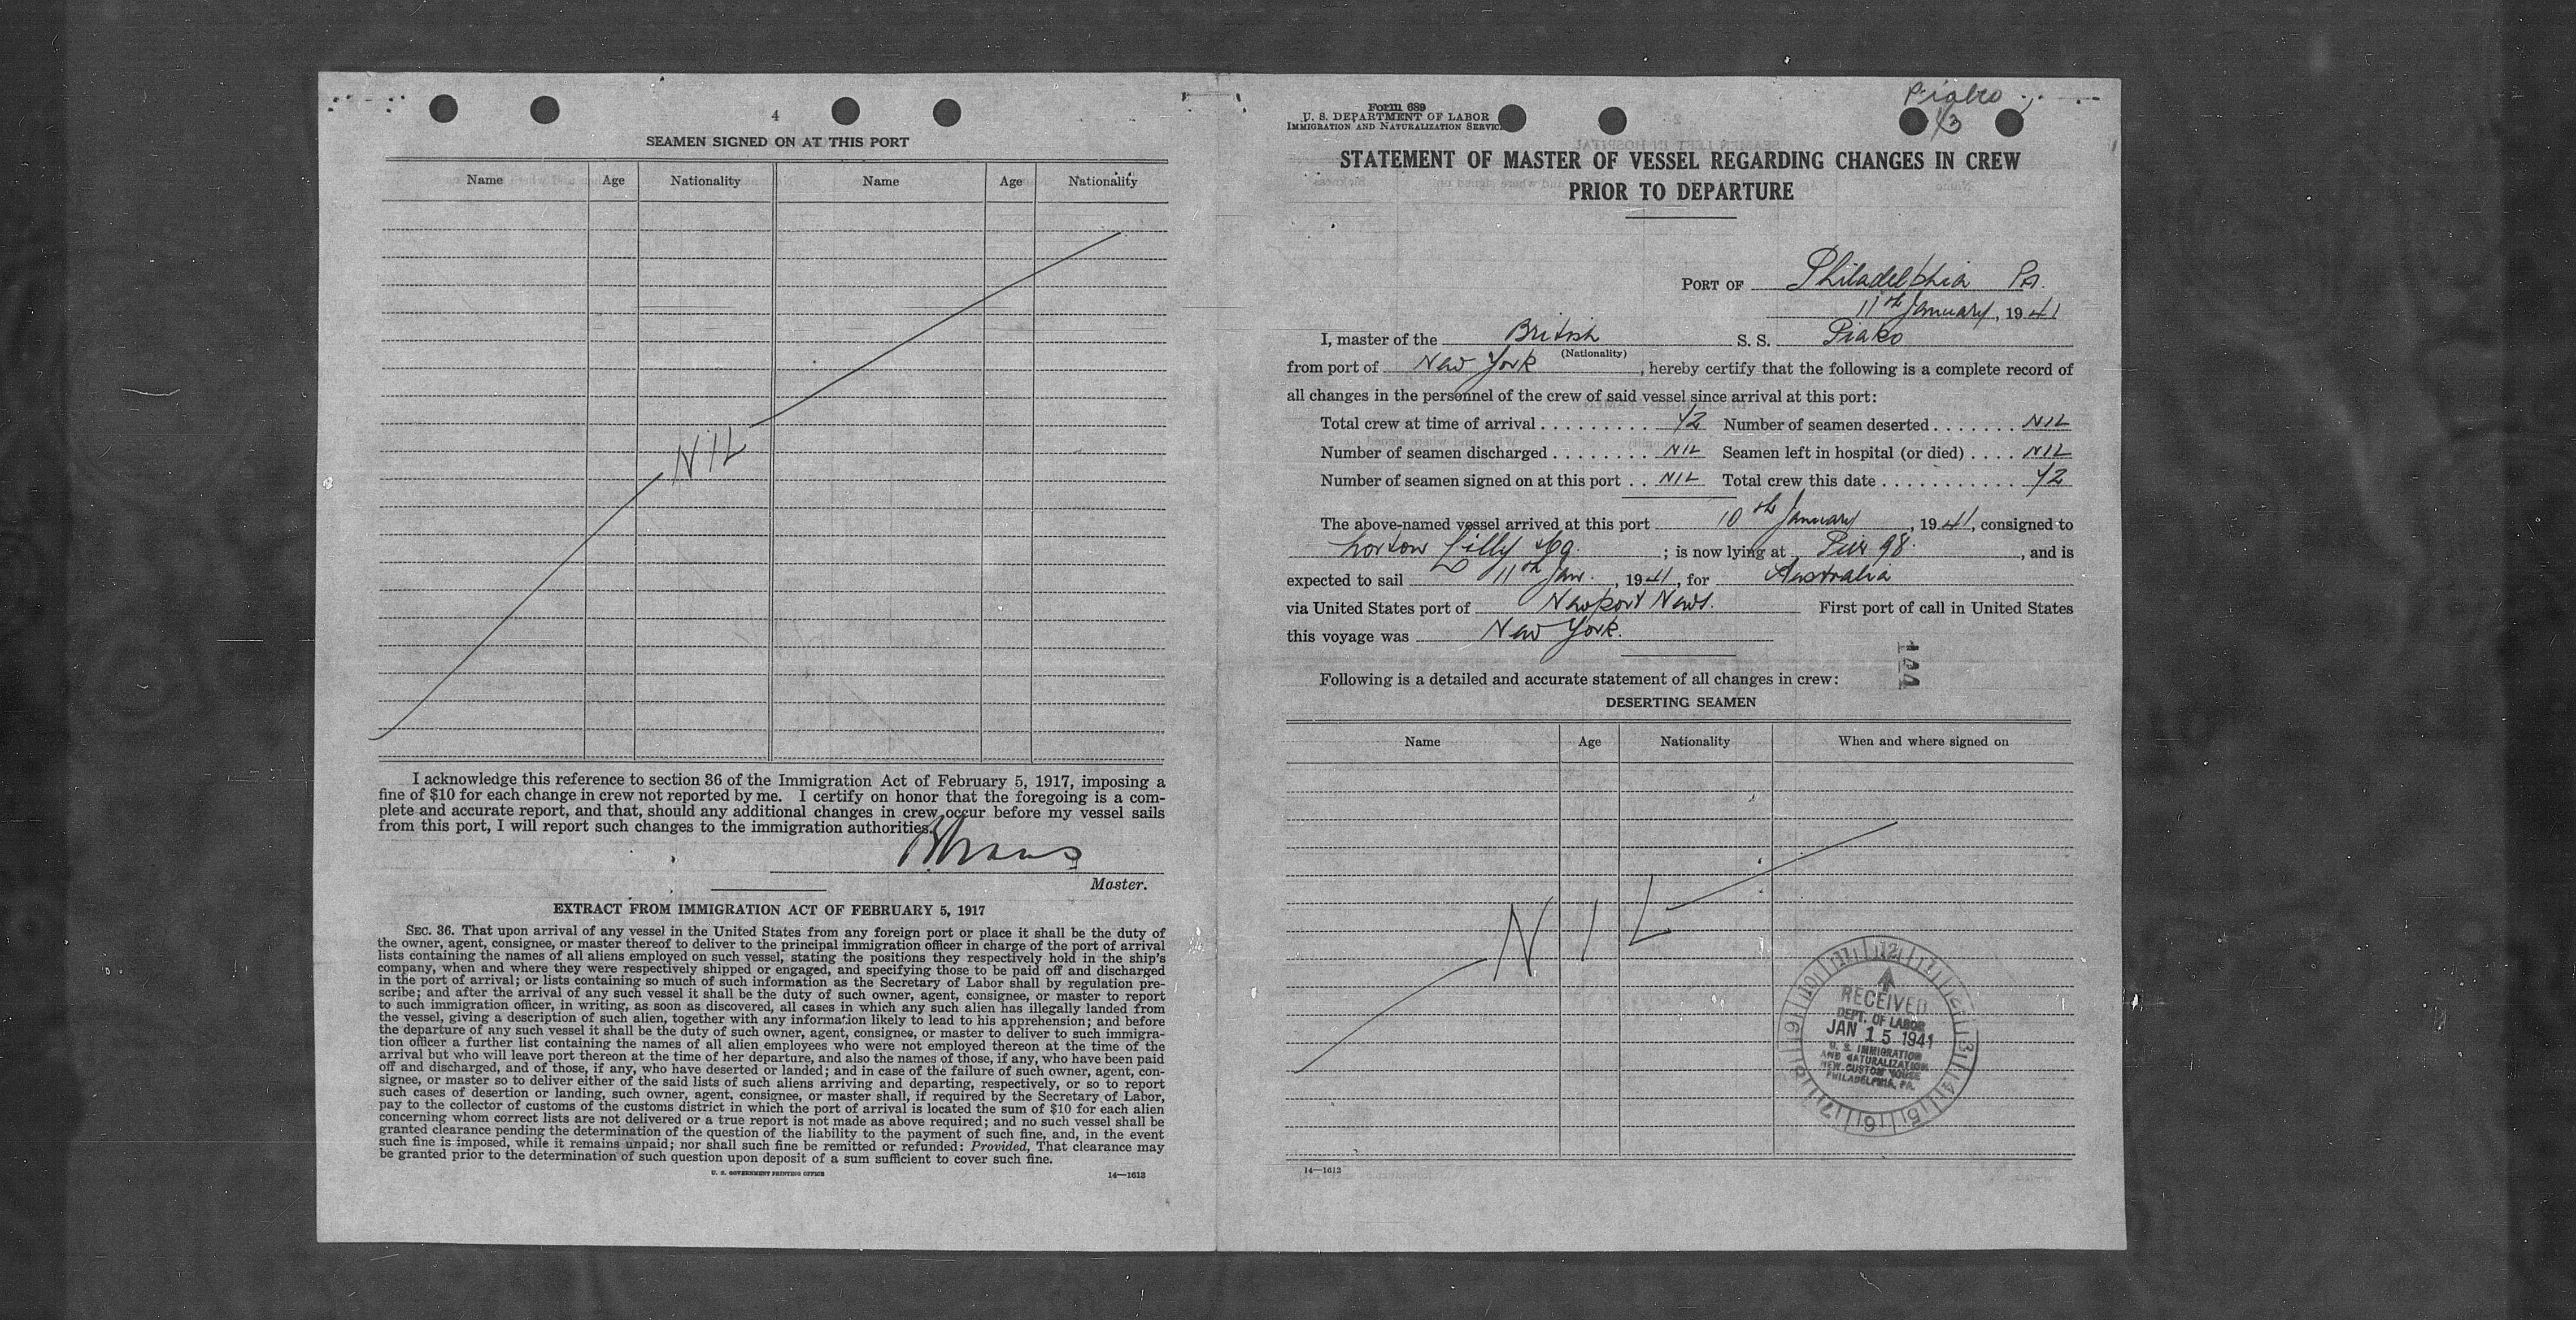 4
SEAMEN SIGNED ON AT THIS PORT
Name Age Nationality Name Age Nationality
NIL
I acknowledge this reference to section 36 of the Immigration Act of February 5, 1917, imposing a
fine of $10 for each change in crew not reported by me. I certify on honor that the foregoing is a com-
plete and accurate report, and that, should any additional changes in crew occur before my vessel sails
from this port, I will report such changes to the immigration authorities.
Master.
EXTRACT FROM IMMIGRATION ACT OF FEBRUARY 5, 1917
SEC. 36. That upon arrival of any vessel in the United States from any foreign port or place it shall be the duty of
the owner, agent, consignee, or master thereof to deliver to the principal immigration officer in charge of the port of arrival
lists containing the names of all aliens employed on such vessel, stating the positions they respectively hold in the ship's
company, when and where they were respectively shipped or engaged, and specifying those to be paid off and discharged
in the port of arrival; or lists containing so much of such information as the Secretary of Labor shall by regulation pre-
scribe; and after the arrival of any such vessel it shall be the duty of such owner, agent, consignee, or master to report
to such immigration officer, in writing, as soon as discovered, all cases in which any such alien has illegally landed from
the vessel, giving a description of such alien, together with any information likely to lead to his apprehension; and before
the departure of any such vessel it shall be the duty of such owner, agent, consignee, or master to deliver to such immigra-
tion officer a further list containing the names of all alien employees who were not employed thereon at the time of the
arrival but who will leave port thereon at the time of her departure, and also the names of those, if any, who have been paid
off and discharged, and of those, if any, who have deserted or landed; and in case of the failure of such owner, agent, con-
signee, or master so to deliver either of the said lists of such aliens arriving and departing, respectively, or so to report
such cases of desertion or landing, such owner, agent, consignee, or master shall, if required by the Secretary of Labor,
pay to the collector of customs of the customs district in which the port of arrival is located the sum of $10 for each alien
concerning whom correct lists are not delivered or a true report is not made as above required; and no such vessel shall be
granted clearance pending the determination of the question of the liability to the payment of such fine, and, in the event
such fine is imposed, while it remains unpaid; nor shall such fine be remitted or refunded: Provided, That clearance may
be granted prior to the determination of such question upon deposit of a sum sufficient to cover such fine.
U. S. GOVERNMENT PRINTING OFFICE 14—1613
Piako
Form 689
U. S. DEPARTMENT OF LABOR
IMMIGRATION AND NATURALIZATION SERVICE
STATEMENT OF MASTER OF VESSEL REGARDING CHANGES IN CREW
PRIOR TO DEPARTURE
PORT OF Philadelphia PA.
11th January, 1941
I, master of the British S. S. Piako
(Nationality)
from port of New York, hereby certify that the following is a complete record of
all changes in the personnel of the crew of said vessel since arrival at this port:
Total crew at time of arrival . . . . . . . . . 72 Number of seamen deserted . . . . . . . NIL
Number of seamen discharged . . . . . . . . NIL Seamen left in hospital (or died) . . . . NIL
Number of seamen signed on at this port . . NIL Total crew this date . . . . . . . . . . . . 72
The above-named vessel arrived at this port 10th January, 1941, consigned to
Norton Lilly & Co.; is now lying at Pier 98., and is
expected to sail 11th Jan., 1941, for Australia
via United States port of Newport News. First port of call in United States
this voyage was New York.
Following is a detailed and accurate statement of all changes in crew:
DESERTING SEAMEN
Name Age Nationality When and where signed on
NIL
RECEIVED
DEPT. OF LABOR
JAN 15 1941
U. S. IMMIGRATION
AND NATURALIZATION
NEW CUSTOM HOUSE
PHILADELPHIA, PA.
14—1613